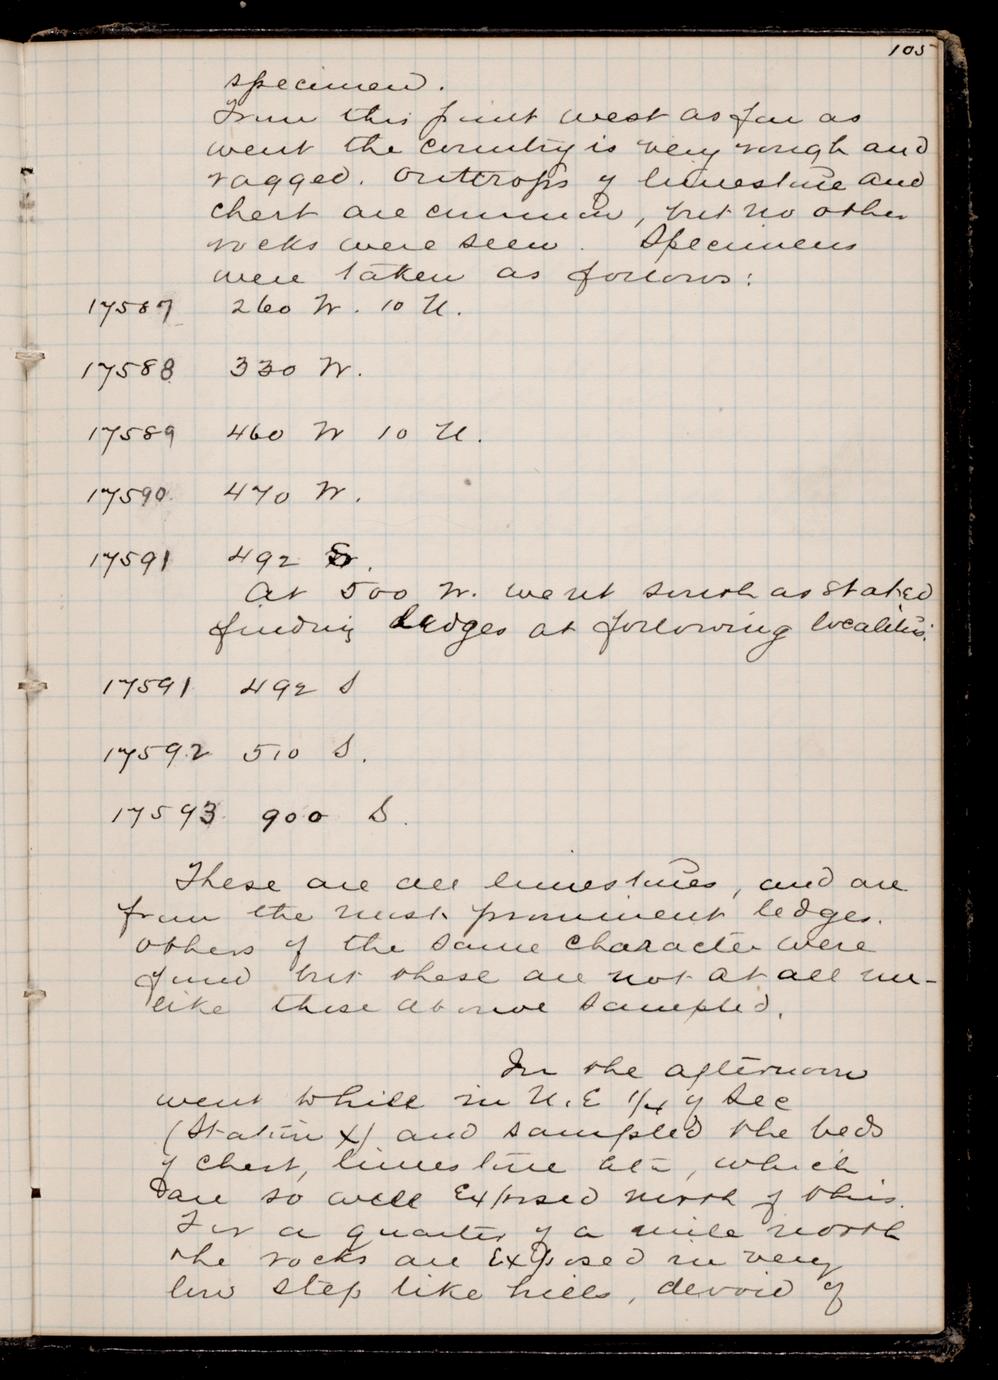 105
specimen.
From this point west as far as
went the country is very rough and
ragged. Outcrops of limestone and
chert are common, but no other
rocks were seen. Specimens
were taken as follows:
17587 260 W. 10 N.
17588 330 W.
17589 460 W 10 N.
17590 470 W.
17591 492 S.
At 500 W. went south as stated
finding ledges at following localities:
17591 492 S
17592 510 S.
17593 900 S.
These are all limestones, and are
from the most prominent ledges.
Others of the same character were
found but these are not at all un-
like those above sampled.
In the afternoon
went to hill in N.E 1/4 of Sec
(Station X) and sampled the beds
of chert, limestone etc, which
are so well exposed north of this.
For a quarter of a mile north
the rocks are exposed in very
low step like hills, devoid of